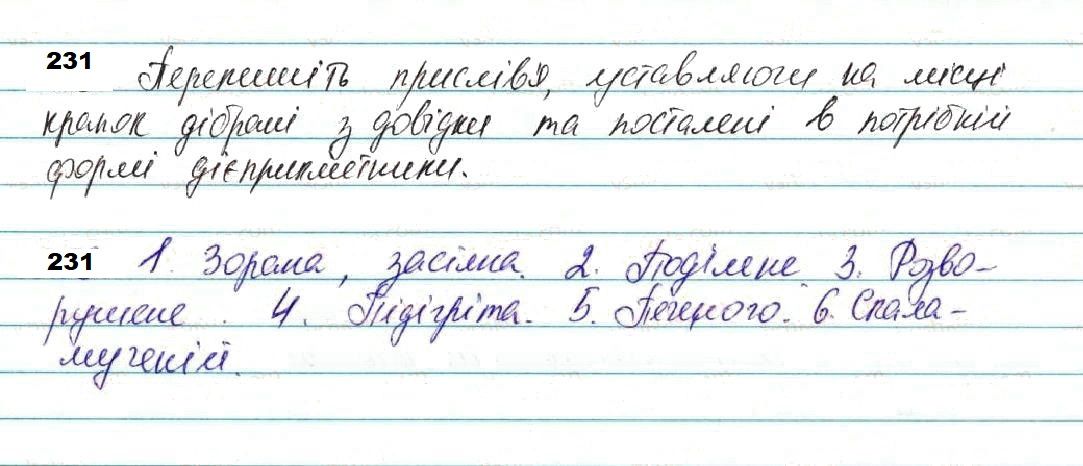 231 Перепишіть прислів'я, уставляючи на місці
крапок дібрані з довідки та поставлені в потрібній
формі дієприкметники.
231 1. Зорана, засіяна. 2. Поділене 3. Розво-
рушене. 4. Підігріта. 5. Печеного. 6. Скала-
мученій.